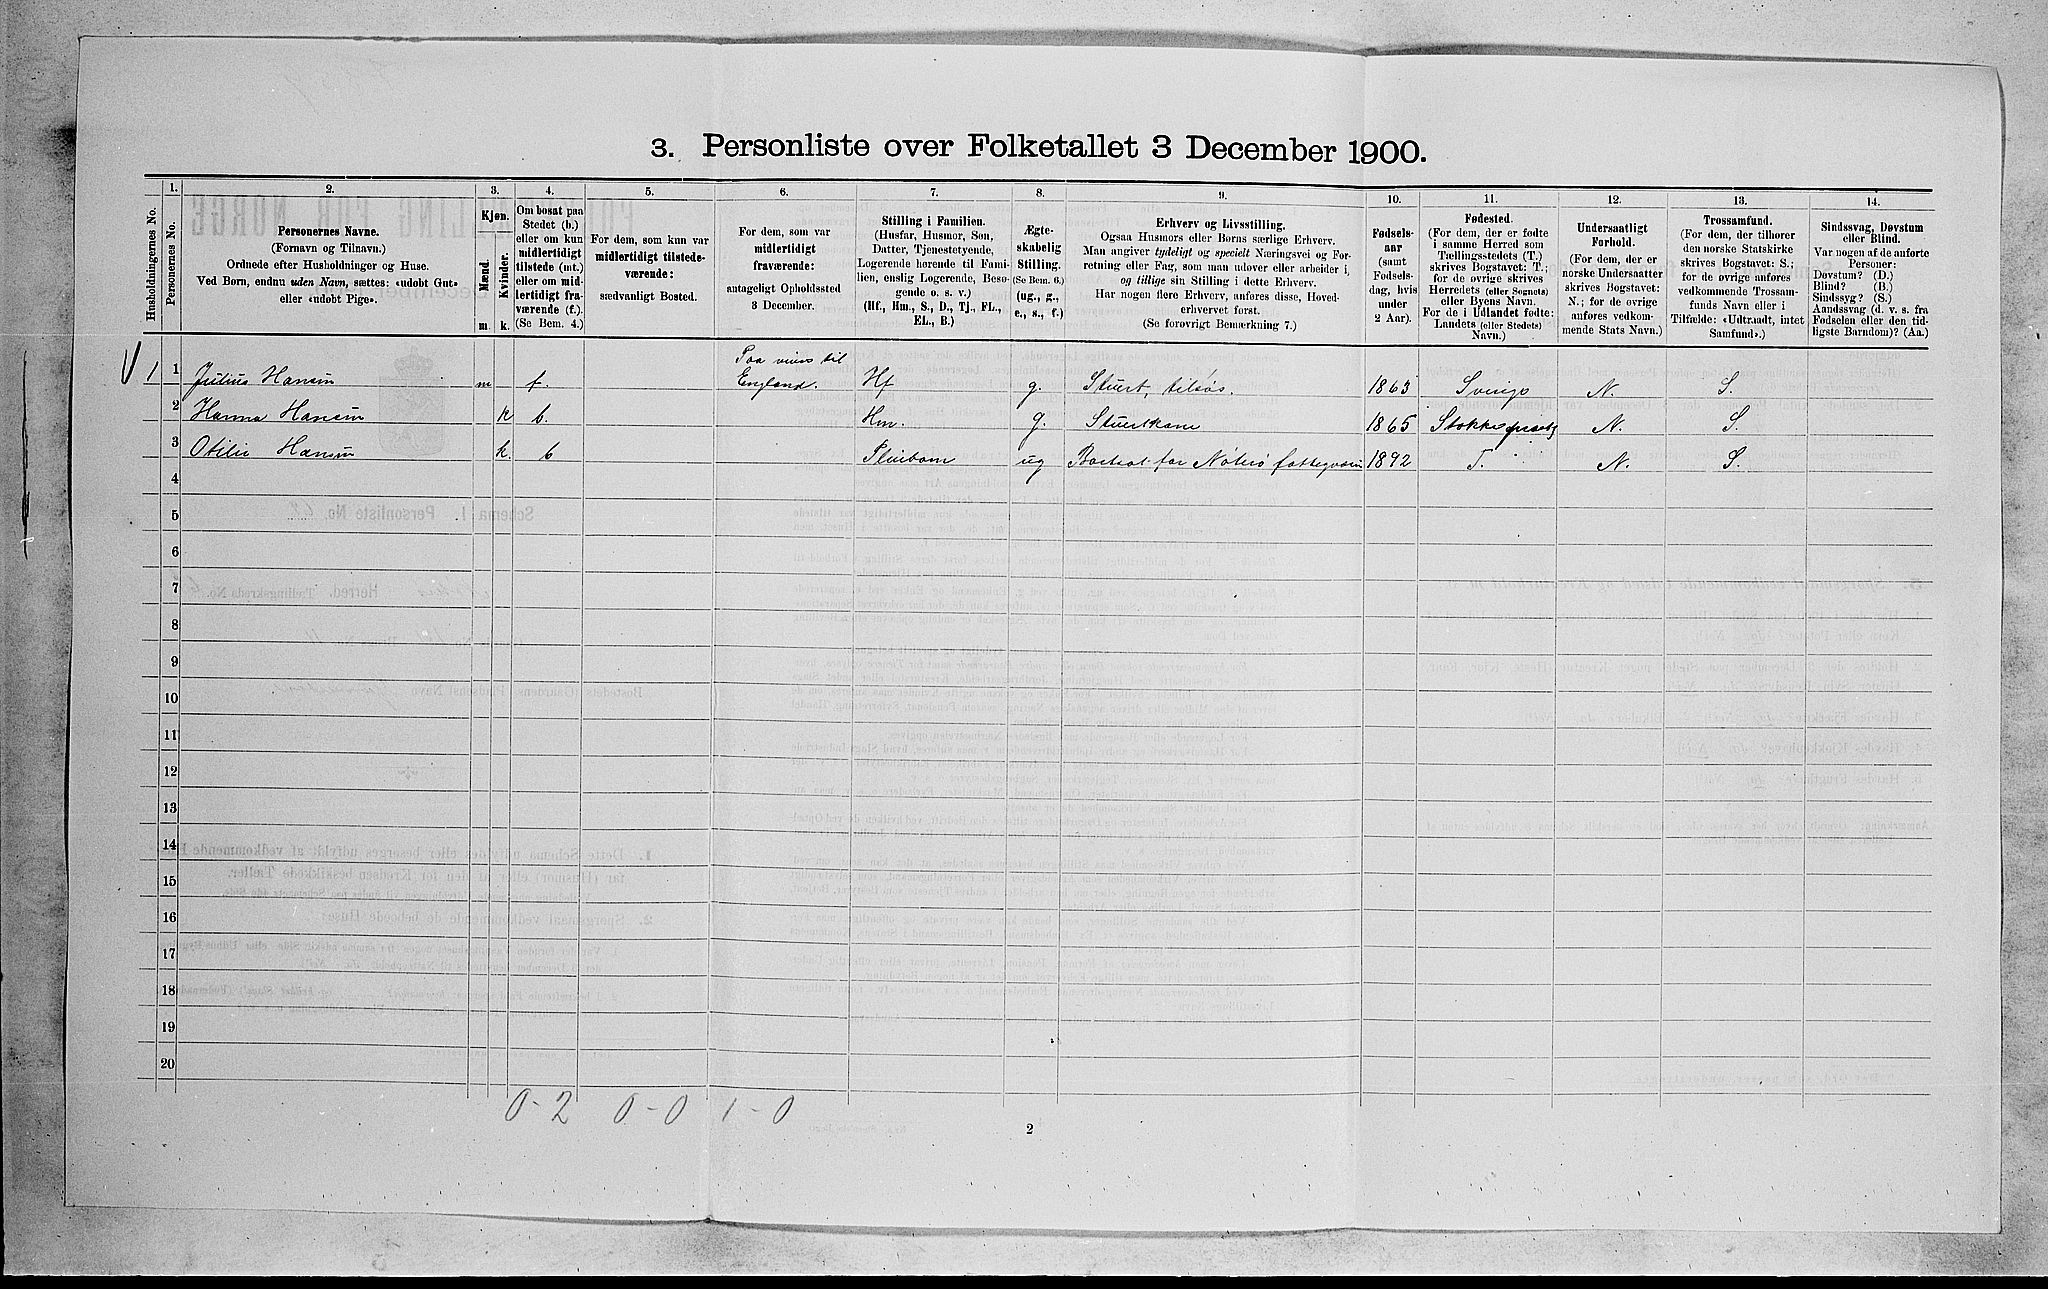 3. Personliste over Folketallet 3 December 1900.
Husholdningernes No.
1.
Personernes No.
2.
Personernes Navne.
(Fornavn og Tilnavn.)
Ordnede efter Husholdninger og Huse.
Ved Børn, endnu uden Navn, sættes: «udøbt Gut»
eller «udøbt Pige».
3.
Kjøn.
Mænd.
Kvinder.
m.
k.
4.
Om bosat paa
Stedet (b.)
eller om kun
midlertidigt
tilstede (mt.)
eller om mid-
lertidigt fra-
værende (f.).
(Se Bem. 4.)
5.
For dem, som kun var
midlertidigt tilstede-
værende:
sædvanligt Bosted.
6.
For dem, som var
midlertidigt
fraværende:
antageligt Opholdssted
3 December.
7.
Stilling i Familien.
(Husfar, Husmor, Søn,
Datter, Tjenestetyende,
Logerende hørende til Fami-
lien, enslig Logerende, Besø-
gende o. s. v.)
(Hf., Hm., S., D., Tj., FL.,
EL., B.)
8.
Ægte-
skabelig
Stilling.
(Se Bem. 6.)
(ug., g.,
e., s., f.)
9.
Erhverv og Livsstilling.
Ogsaa Husmors eller Børns særlige Erhverv.
Man angiver tydeligt og specielt Næringsvei og For-
retning eller Fag, som man udover eller arbeider i,
og tillige sin Stilling i dette Erhverv.
Har nogen flere Erhverv, anføres disse, Hoved-
erhvervet først.
(Se forøvrigt Bemærkning 7.)
10.
Fødsels-
aar
(samt
Fødsels-
dag, hvis
under
2 Aar).
11.
Fødested.
(For dem, der er fødte
i samme Herred som
Tællingsstedets (T.)
skrives Bogstavet: T.;
for de øvrige skrives
Herredets (eller Sognets)
eller Byens Navn.
For de i Udlandet fødte:
Landets (eller Stedets)
Navn.)
12.
Undersaatligt
Forhold.
(For dem, der er
norske Undersaatter
skrives Bogstavet:
N.; for de øvrige
anføres vedkom-
mende Stats Navn.)
13.
Trossamfund.
(For dem, der tilhører
den norske Statskirke
skrives Bogstavet: S.;
for de øvrige anføres
vedkommende Trossam-
funds Navn eller i
Tilfælde: «Udtraadt, intet
Samfund».)
14.
Sindssvag, Døvstum
eller Blind.
Var nogen af de anførte
Personer:
Døvstum? (D.)
Blind? (B.)
Sindssyg? (S.)
Aandssvag (d. v. s. fra
Fødselen eller den tid-
ligste Barndom)? (Aa.)
V 1 1 Julius Hansen m f. Paa reise til England. Hf g. Stuert, tilsøs. 1863 Sverige N. S.
2 Hanna Hansen k b. Hm. g. Stuertkone 1865 Stokke N. S.
3 Otilie Hansen k. b Pleiebarn ug Bortsat for Nøterø fattigvæsen 1892 T. N. S.
4
5
6
7
8
9
10
11
12
13
14
15
16
17
18
19
20
0-2 0-0 1-0
2